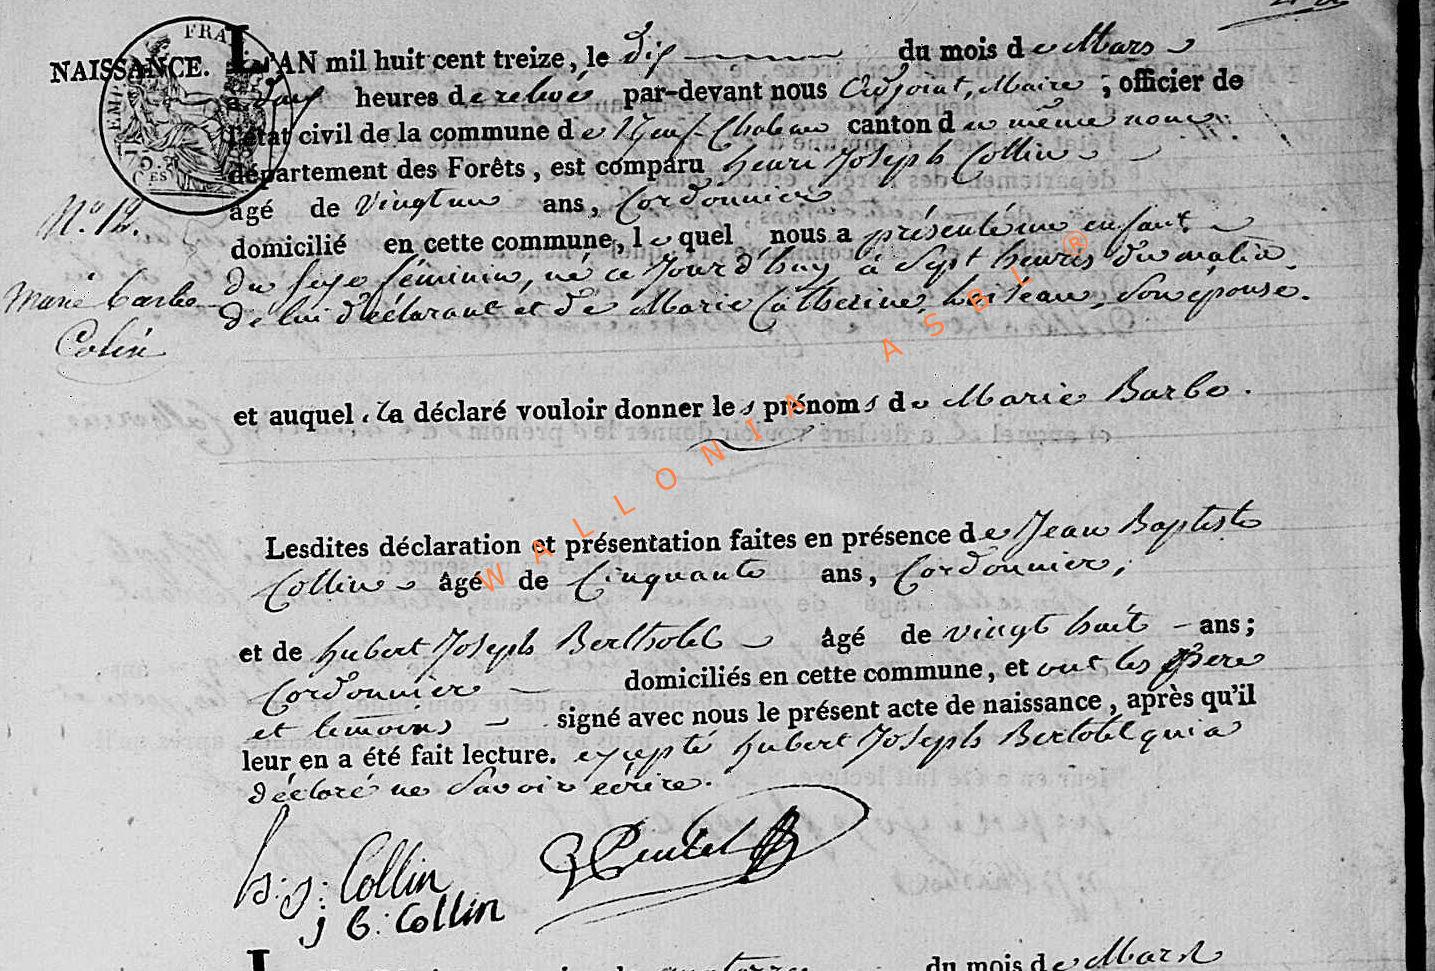 NAISSANCE. L'AN mil huit cent treize, le dix du mois de Mars
à dix heures de relevée par-devant nous Adjoint, Maire ; officier de
l'état civil de la commune de Neuf-Chateau canton du même nom
département des Forêts, est comparu henri Joseph Collin
N.o 12.
âgé de vingt un ans, Cordonnier
domicilié en cette commune, lequel nous a présenté un enfant
du sexe féminin, né ce Jourd'huy à Sept heures du matin
Marie Barbe
de lui déclarant et de Marie Catherine, son épouse.
Colin
et auquel il a déclaré vouloir donner les prénoms de Marie Barbe.
Lesdites déclaration et présentation faites en présence de Jean Baptiste
Collin âgé de Cinquante ans, Cordonnier,
et de hubert Joseph Berthotel âgé de vingt huit ans;
Cordonnier domiciliés en cette commune, et ont les père
et temoins signé avec nous le présent acte de naissance, après qu'il
leur en a été fait lecture. excepté hubert Joseph Bertotel qui a
déclaré ne Savoir écrire.
h: j: Collin
j B: Collin
du mois de Mars
WALLONIA ASBL ®